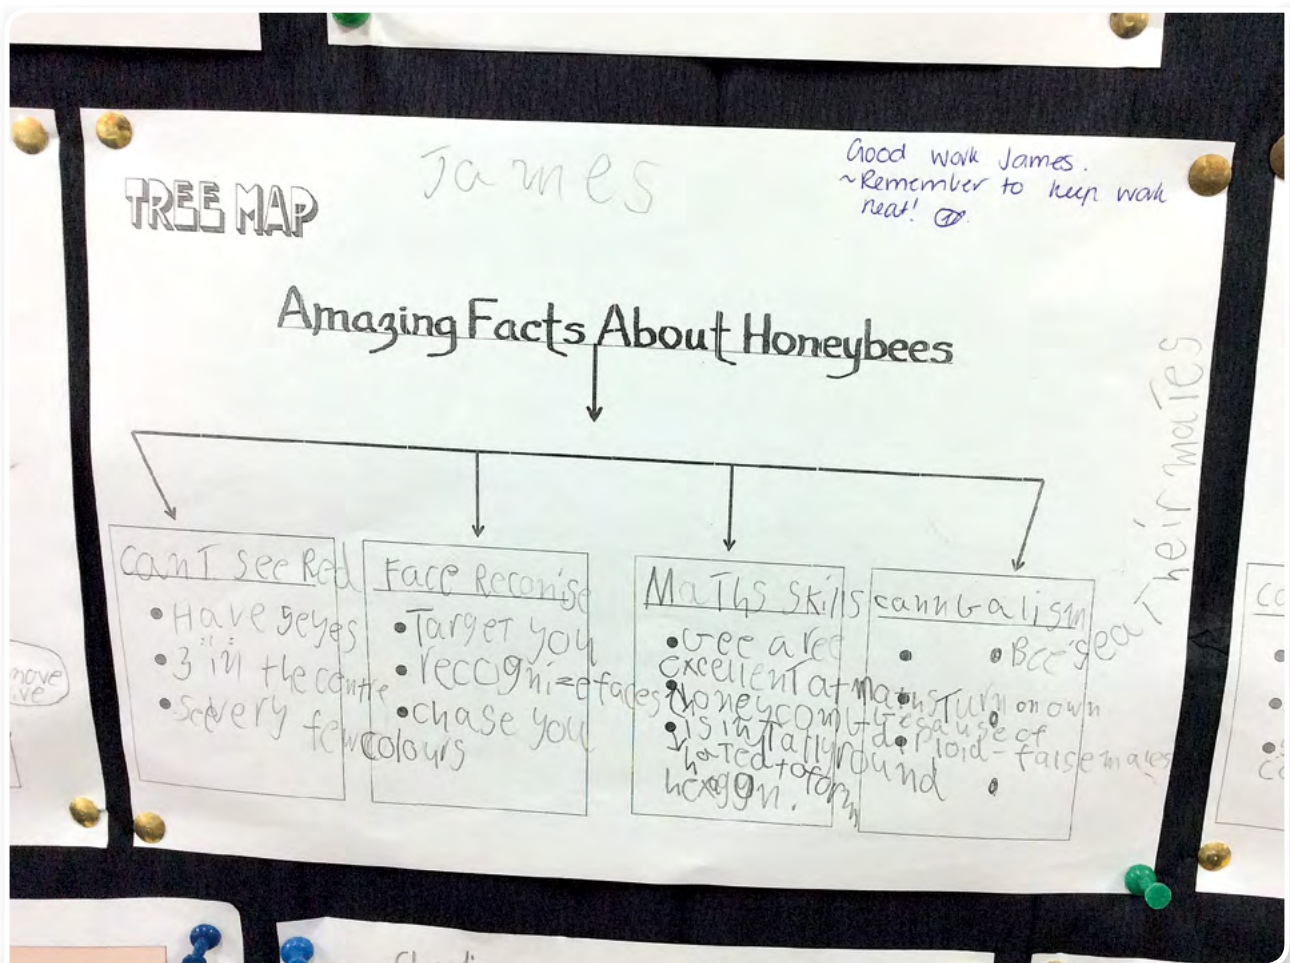 James
Good work James.
~Remember to keep work
neat!
TREE MAP
Amazing Facts About Honeybees
can't see Red
• Have 5 eyes
• 3 in the centre
• See very few
colours
Face Reconise
• Target you
• recognize faces
• chase you
Maths skills
• Bee are
excellent at maths
• honeycomb
• is intally round
hated to form
hexagon.
cannbalism
• Bee's eat Their mates
• Turn on own
because of
• diploid - false males
move
ive